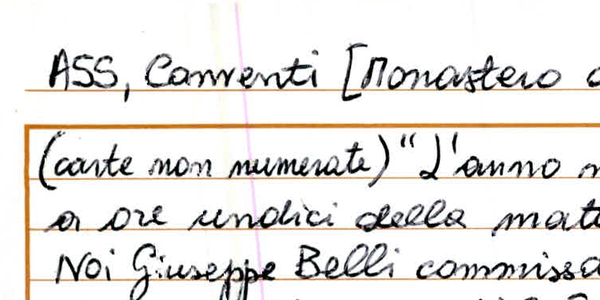 ASS, Conventi [Monastero
(carte non numerate) "L'anno
a ore undici della mat
Noi Giuseppe Belli commissa